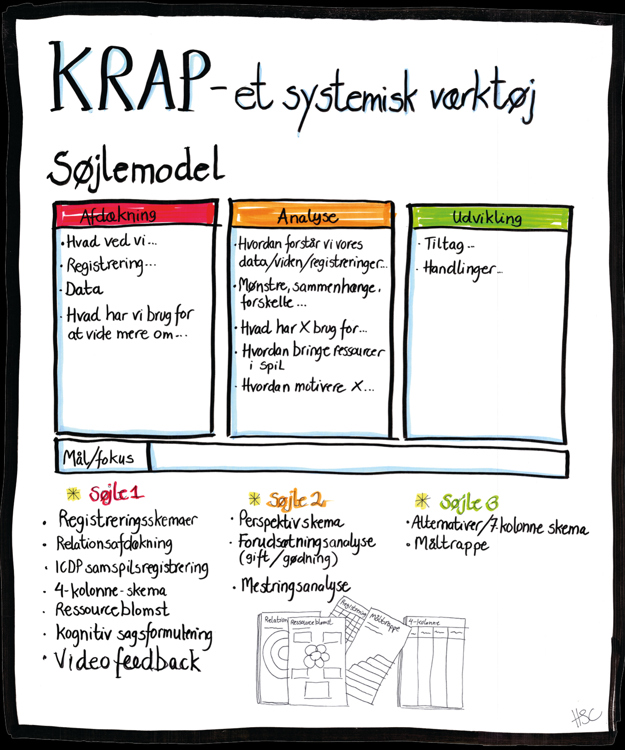 KRAP - et systemisk værktøj
Søjlemodel
Afdækning
· Hvad ved vi...
· Registrering...
· Data
· Hvad har vi brug for
at vide mere om...
Analyse
· Hvordan forstår vi vores
data/viden/registreringer...
· Mønstre, sammenhænge,
forskelle...
· Hvad har X brug for...
· Hvordan bringe ressourcer
i spil
· Hvordan motivere X...
Udvikling
· Tiltag...
· Handlinger...
Mål/fokus
Søjle 1
· Registreringsskemaer
· Relationsafdækning
· ICDP samspilsregistrering
· 4-kolonne-skema
· Ressourceblomst
· Kognitiv sagsformulering
· Videofeedback
Søjle 2
· Perspektivskema
· Forudsætningsanalyse
(gift/gødning)
· Mestringsanalyse
Søjle 3
· Alternativer/7 kolonne skema
· Måltrappe
Relation
Ressourceblomst
Registrering
Måltrappe
4-kolonne
HSC